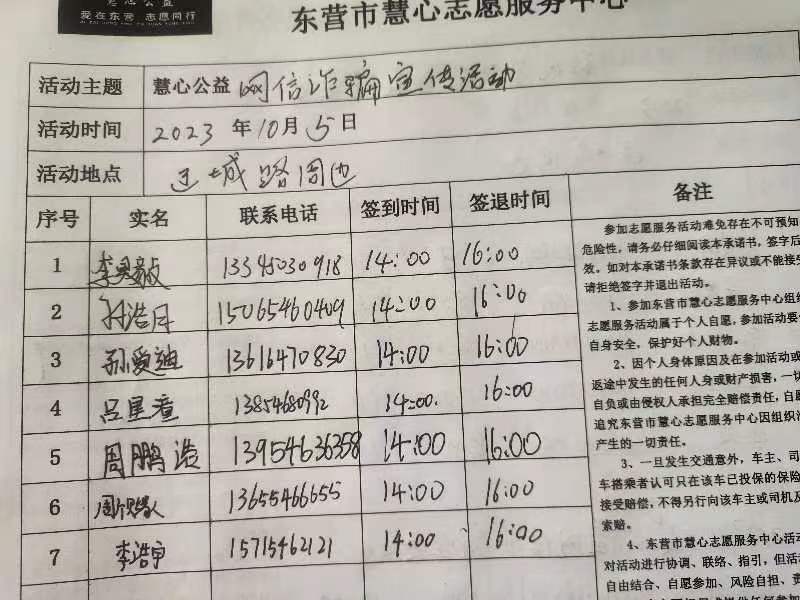 我在东营 志愿同行
东营市慧心志愿服务中心
活动主题 慧心公益 网信诈骗宣传活动
活动时间 2023 年 10 月 5 日
活动地点 城路周边
序号 实名 联系电话 签到时间 签退时间 备注
1 李昊毅 13345030918 14:00 16:00
2 孙浩月 15065460409 14:00 16:00
3 孙爱迪 13616470830 14:00 16:00
4 吕星潼 13854680992 14:00. 16:00
5 周鹏浩 13954636358 14:00 16:00
6 13655466655 14:00 16:00
7 李浩宇 15715462121 14:00 16:00
参加志愿服务活动难免存在不可预知
危险性，请务必仔细阅读本承诺书，签字后
效。如对本承诺书条款存在异议或不能接受
请拒绝签字并退出活动。
1、参加东营市慧心志愿服务中心组织
志愿服务活动属于个人自愿，参加活动要
自身安全，保护好个人财物。
2、因个人身体原因及在参加活动或
返途中发生的任何人身或财产损害，一切
自负或由侵权人承担完全赔偿责任，自愿
追究东营市慧心志愿服务中心因组织
产生的一切责任。
3、一旦发生交通意外，车主、司
车搭乘者认可只在该车已投保的保险
接受赔偿，不得另行向该车主或司机及
索赔。
4、东营市慧心志愿服务中心活动
对活动进行协调、联络、指引，但活
自由结合、自愿参加、风险自担、责